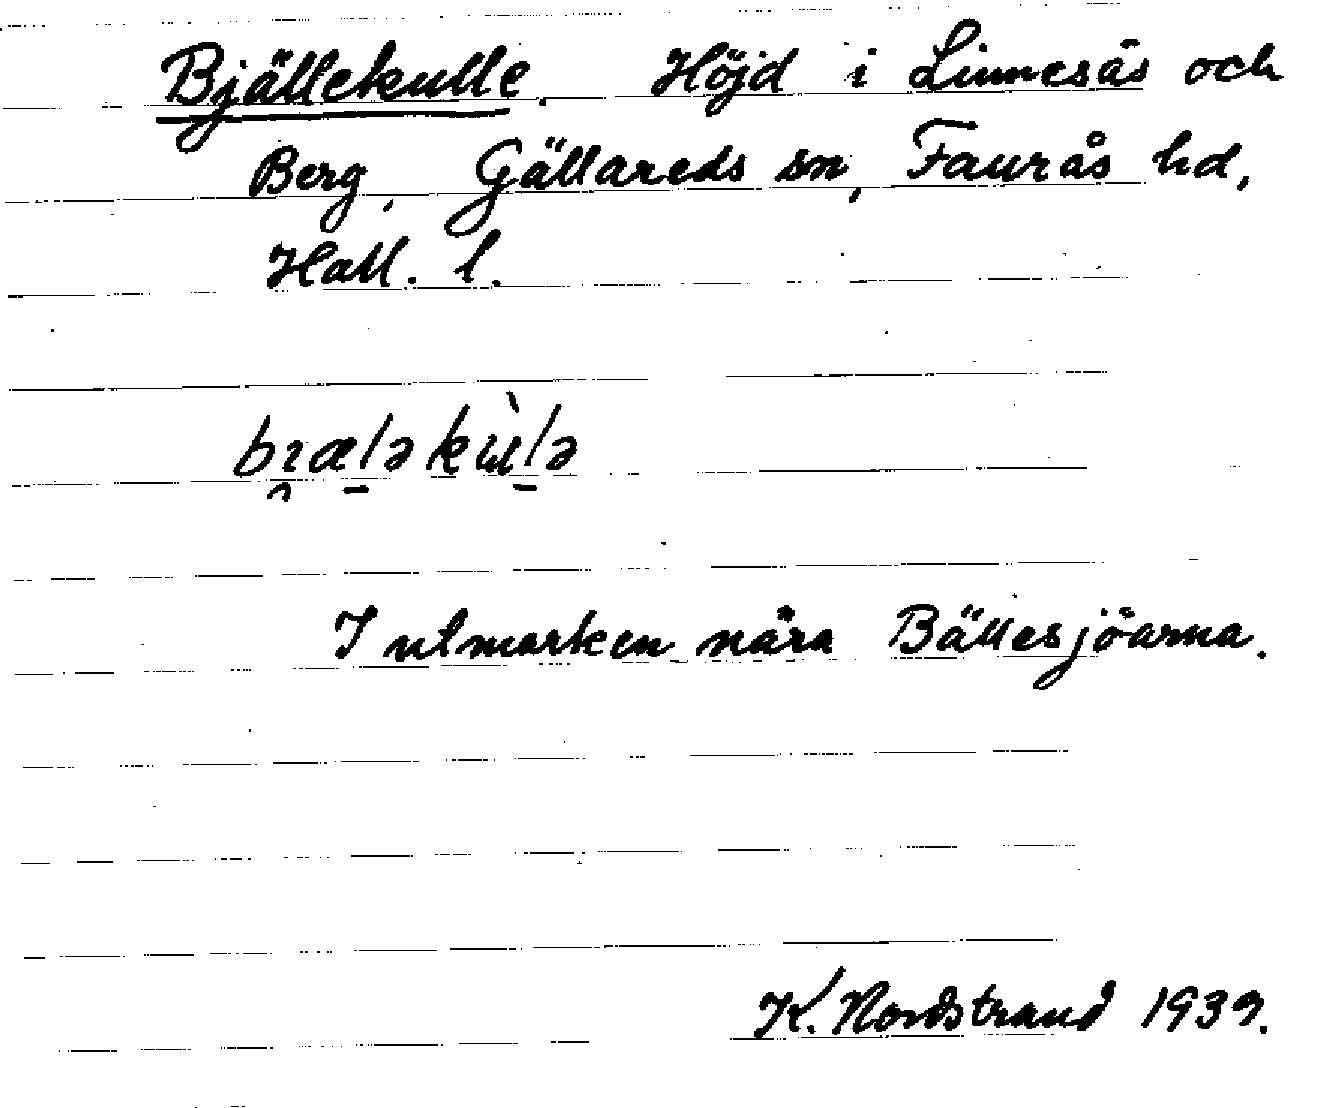 Bjällekulle. Höjd i Linnesås och
Berg, Gällareds sn, Faurås hd,
Hall. l.
I utmarken nära Bällesjöarna.
K. Nordstrand 1939.